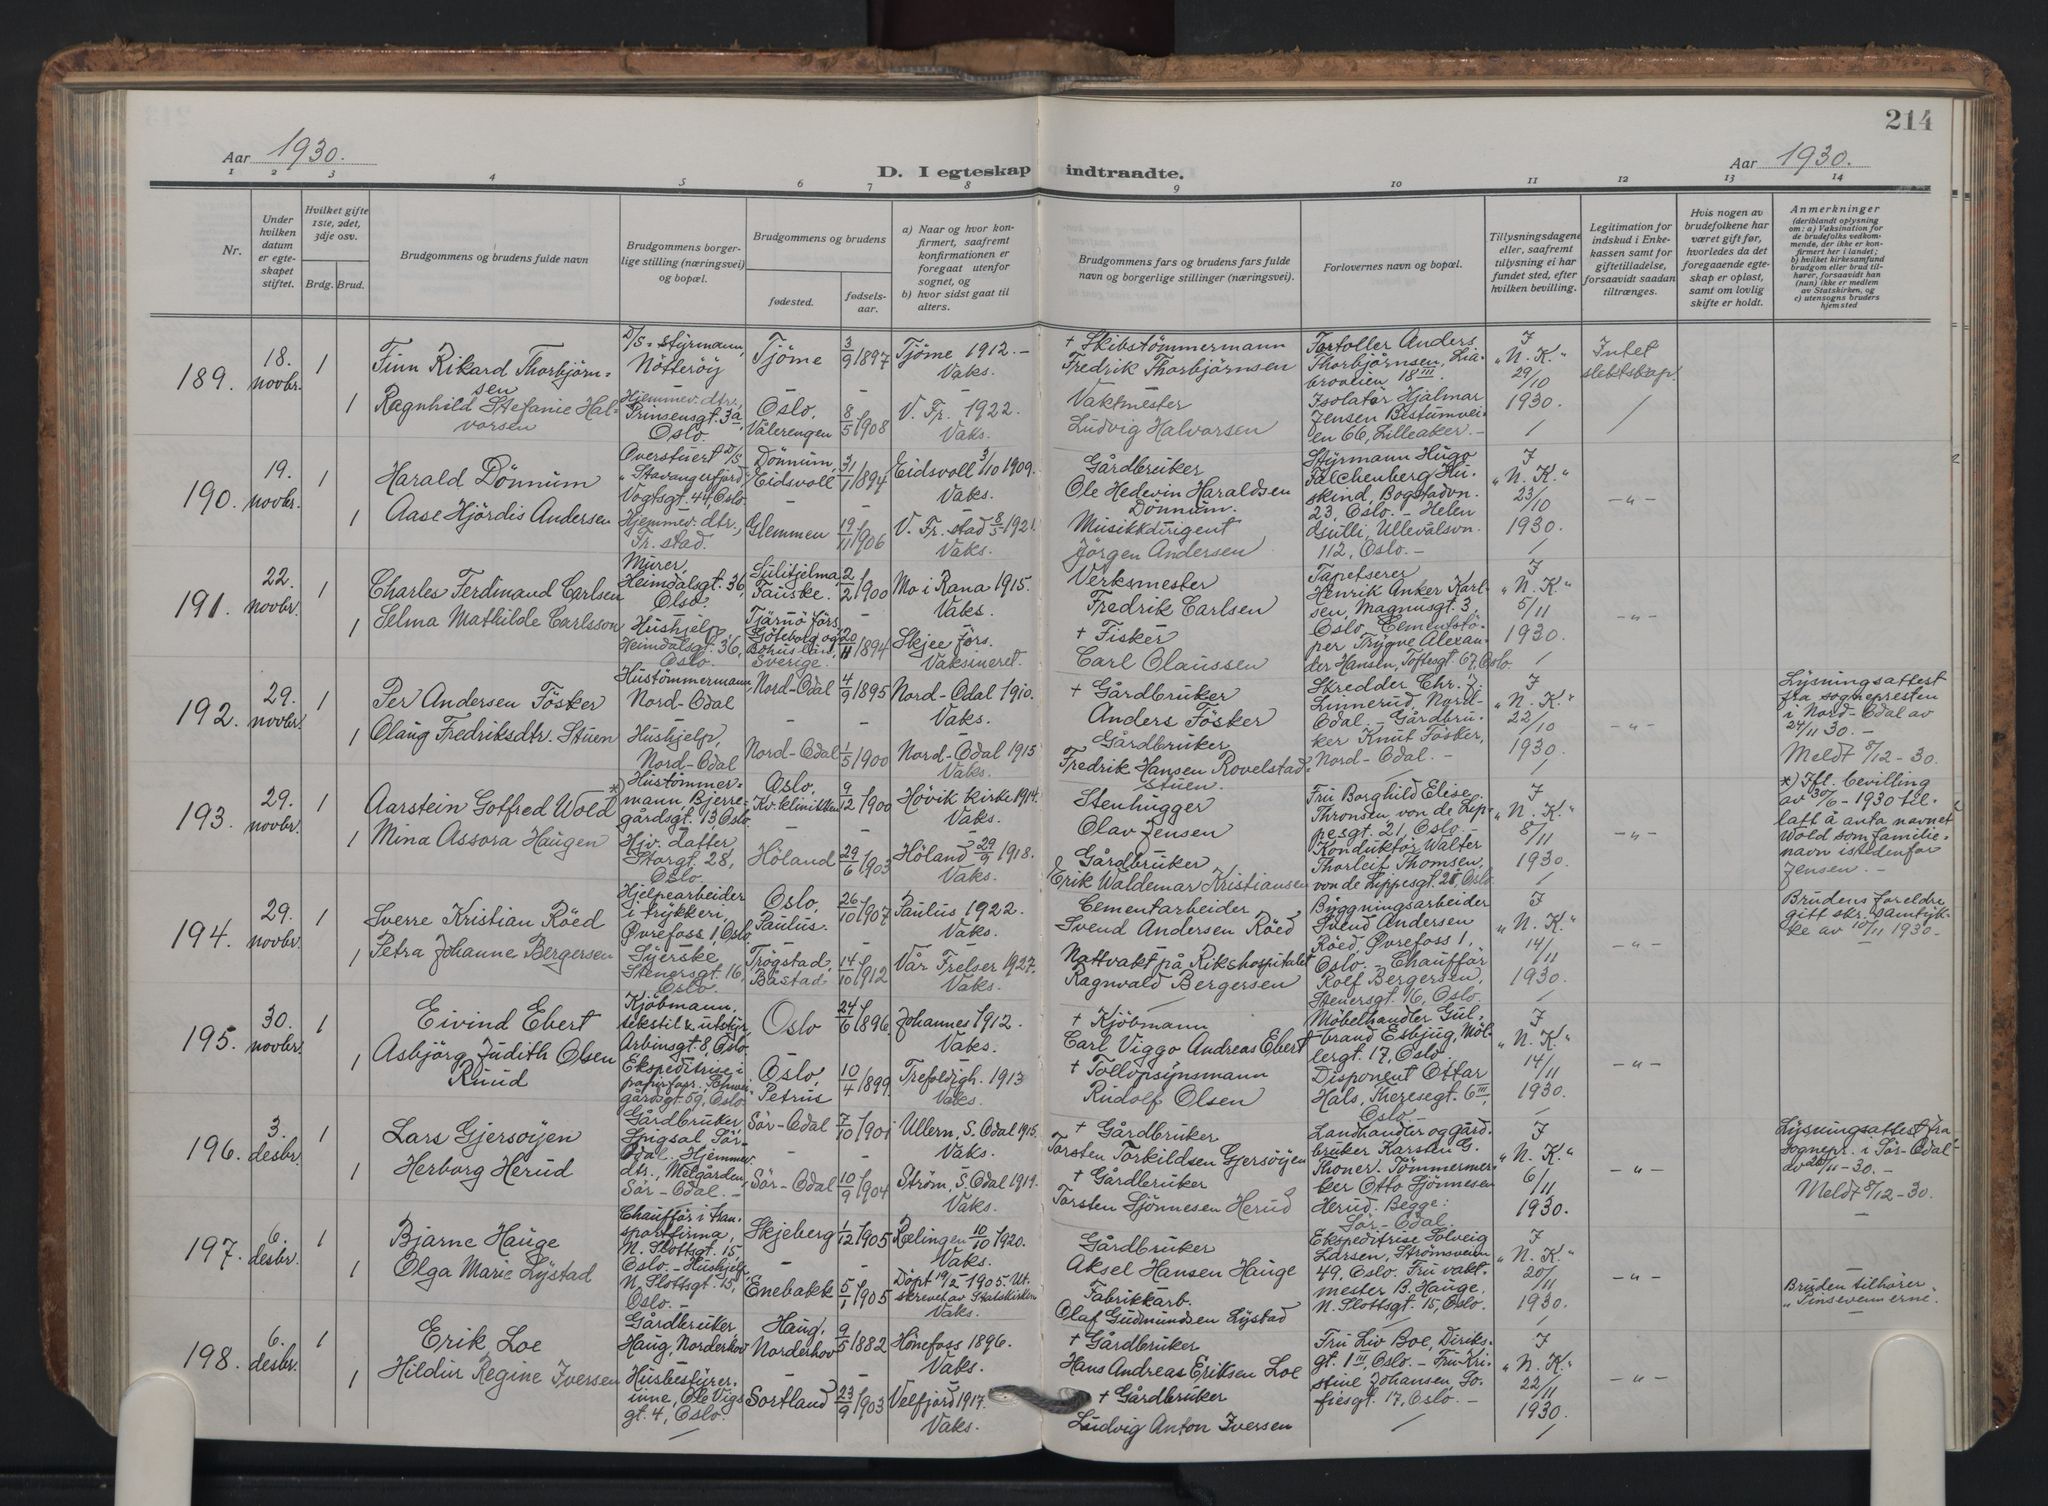 214
Aar 1930.
D. I egteskap indtraadte.
Aar 1930.
1 2 3 4 5 6 7 8 9 10 11 12 13 14
Nr.
Under hvilken datum er egteskapet stiftet.
Hvilket gifte 1ste, 2det, 3dje osv.
Brdg. Brud.
Brudgommens og brudens fulde navn
Brudgommens borgerlige stilling (næringsvei) og bopæl.
Brudgommens og brudens
fødested.
fødselsaar.
a) Naar og hvor konfirmert, saafremt konfirmationen er foregaat utenfor sognet, og
b) hvor sidst gaat til alters.
Brudgommens fars og brudens fars fulde navn og borgerlige stillinger (næringsvei).
Forlovernes navn og bopæl.
Tillysningsdagene eller, saafremt tillysning ei har fundet sted, efter hvilken bevilling.
Legitimation for indskud i Enkekassen samt for giftetilladelse, forsaavidt saadan tiltrænges.
Hvis nogen av brudefolkene har været gift før, hvorledes da det foregaaende egteskap er opløst, samt om lovlig skifte er holdt.
Anmerkninger
(deriblandt oplysning om: a) Vaksination for de brudefolks vedkommende, der ikke er konfirmert her i landet;
b) hvilket kirkesamfund brudgom eller brud tilhører, forsaavidt han (hun) ikke er medlem av Statskirken, og
c) utensogns bruders hjemsted
189. 18. novbr. 1
Finn Rikard Thorbjørnsen
D/S. styrmann, Nötteröy
Tjöme 3/9 1897
Tjöme 1912. - Vaks.
+ Skibstömmermann Fredrik Thorbjörnsen
Fortoller Anders Thorbjörnsen, Liabroveien 18 III.
I "N. K." 29/10 1930.
Intet slektskap.
1 Ragnhild Stefanie Halvorsen
Hjemmev. dtr., Prinsensgt. 3a, Oslo.
Oslo, Vålerengen 8/5 1908
V. Fr. 1922. Vaks.
Vaktmester Ludvig Halvorsen
Isolatør Hjalmar Jensen Bestumveien 66, Lilleaker. -
190. 19. novbr. 1
Harald Dönnum
Overstuert D/S "Stavangerfjord" Vogtsgt. 44, Oslo
Dönnum, Eidsvoll 31/1 1894
Eidsvoll 3/10 1909. Vaks.
Gårdbruker Ole Hedevin Haraldsen Dönnum.
Styrmann Hugo Falchenberg Huskind, Bogstadvn. 23, Oslo. - Helen Gulli, Ullevålsvn. 112, Oslo. -
I "N. K." 23/10 1930.
- " -
1 Aase Hjördis Andersen
Hjemmev. dtr., Fr. stad.
Glemmen 19/11 1906
V. Fr. stad 8/5 1921. Vaks.
Musikkdirigent Jörgen Andersen
191. 22. novbr. 1
Charles Ferdinand Carlsen
Murer, Heimdalsgt. 36, Olso.
Sulitjelma, Fauske. 2/2 1900
Mo i Rana 1915. Vaks.
Verksmester Fredrik Carlsen
Tapetserer Henrik Anker Karlsen, Magnusgt. 3, Oslo. Cementstöper Trygve Alexander Hansen, Toftesgt. 67, Oslo
I "N. K." 5/11 1930.
- " -
1 Selma Mathilde Carlsson
Hushjelp, Heimdalsgt. 36, Oslo.
Tjärnöförs. Göteborg og Bohus län, Sverige. 20/11 1894
Skjee förs. Vaksineret.
+ Fisker Carl Olaussen
192. 29. novbr. 1
Per Andersen Fösker
Hustömmermann, Nord-Odal
Nord-Odal 4/9 1895
Nord-Odal 1910. Vaks.
+ Gårdbruker Anders Fösker
Skredder Chr. J. Linnerud, Nord-Odal. - Gårdbruker Knut Fosker, Nord-Odal. -
I "N. K." 22/10 1930.
- " -
Lysningsattest fra sognepresten i Nord-Odal av 24/11 30. - Meldt 8/12 - 30.
1 Olaug Fredriksdtr. Stuen
Hushjelp, Nord-Odal
Nord-Odal 1/5 1900
Nord-Odal 1915 Vaks.
Gårdbruker Fredrik Hansen Rovelstadstuen.
193. 29. novbr. 1
Aarstein Gotfred Wold *)
Hustömmermann, Bjerregårdsgt. 13 Oslo
Oslo, Kv. klinikken 9/12 1900
Hövik kirke 1914. Vaks.
Stenhugger Olav Jensen
Fru Borghild Elise Thronsen von de Lippesgt. 21, Oslo - Konduktör Walter Thorleif Thomsen, von de Lippesgt. 21, Oslo
I "N. K." 8/11 1930.
- " -
*) Ifl. bevilling av 30/6 - 1930 tillatt å anta navnet Wold som familienavn istedenfor Jensen. -
1 Mina Assora Haugen
Hjv. datter, Storgt. 28, Oslo.
Höland 29/6 1903
Höland 29/9 1918. Vaks.
Gårdbruker Erik Waldemar Kristiansen
194. 29. novbr. 1
Sverre Kristian Röed
Hjelpearbeider i trykkeri, Øvrefoss 1, Oslo
Oslo, Paulus. 26/10 1907
Paulus 1922. Vaks.
Cementarbeider Svend Andersen Röed
Bygningsarbeider Svend Andersen Röed, Øvrefoss 1, Oslo. - Chauffør Rolf Bergersen, Stenersgt. 16, Oslo.
I "N. K." 14/11 1930.
- " -
Brudens foreldre gitt skr. samtykke av 10/11 1930. -
1 Petra Johanne Bergersen
Syerske Stenersgt. 16, Oslo.
Trögstad, Båstad 14/10 1912
Vår Frelser 1927. Vaks.
Nattvakt på Rikshospitalet Ragnvald Bergersen
195. 30. novbr. 1
Eivind Ebert
Kjöbmann, tekstil & utstyr, Arbinsgt. 8, Oslo.
Oslo 24/6 1896
Johannes 1912. Vaks.
+ Kjöbmann Carl Viggo Andreas Ebert
Möbelhandler Gulbrand Esbjug, Möllergt. 17, Oslo. Disponent Ottar Hals, Theresegt. 6 III, Oslo
I "N. K." 14/11 1930.
- " -
1 Asbjörg Judith Olsen Ruud
Ekspeditrise i papirforr. Schweigårdsgt. 59, Oslo
Oslo, Petrus 10/4 1899
Trefoldigh. 1913 Vaks.
+ Tollopsynsmann Rudolf Olsen
196. 3. desbr. 1
Lars Gjersöyen
Gårdbruker Spigsal, Sör-Odal.
Sör-Odal 7/10 1901
Ullern, S. Odal 1915. Vaks.
+ Gårdbruker Torsten Torkildsen Gjersöyen
Landhandler og gårdbruker Karsten G. Thoner. Tömmermerker Otto Sjönnesen Herud. Begge: Sör-Odal.
I "N. K" 6/11 1930.
- " -
Lysningsattest fra sognepr. i Sör-Odal av 28/11 - 30. - Meldt 8/12 - 30.
1 Herborg Herud
Hjemmev. dtr., Melgården, Sör-Odal. -
Sör-Odal 10/9 1904
Ström, S. Odal 1919. Vaks.
+ Gårdbruker Torsten Sjönnesen Herud
197. 6. desbr. 1
Bjarne Hauge
Chauffør i transportfirma, N. Slottsgt. 15, Oslo. -
Skjeberg 1/12 1905
Rælingen 10/10 1920. Vaks.
Gårdbruker Aksel Hansen Hauge
Ekspeditrise Solveig Larsen, Strömsveien 49, Oslo. Fru vaktmester B. Hauge, N. Slottsgt. 15, Oslo.
I "N. K" 20/11 1930.
- " -
Bruden tilhører "Pinsevennerne".
1 Olga Marie Lystad
Hushjelp, N. Slottsgt. 15, Oslo. -
Enebakk 5/1 1905
Döpt 19/2 - 1905. Utskrevet av Statskirken Vaks.
Fabrikkarb. Olaf Gudmundsen Lystad
198. 6. desbr. 1
Erik Loe
Gårdbruker, Haug, Norderhov
Haug, Norderhov 9/5 1882
Hönefoss 1896. Vaks.
+ Gårdbruker Hans Andreas Eriksen Loe
Fru Liv Boe, Diriksgt. 1 III, Oslo. - Fru Kristine Johansen, Sofiesgt. 17, Oslo. -
I "N. K." 22/11 1930.
- " -
1 Hildur Regine Iversen
Husbestyrerinne, Ole Vigsgt. 4, Oslo.
Sortland 23/9 1903
Velfjord 1917. Vaks.
+ Gårdbruker Ludvig Anton Iversen